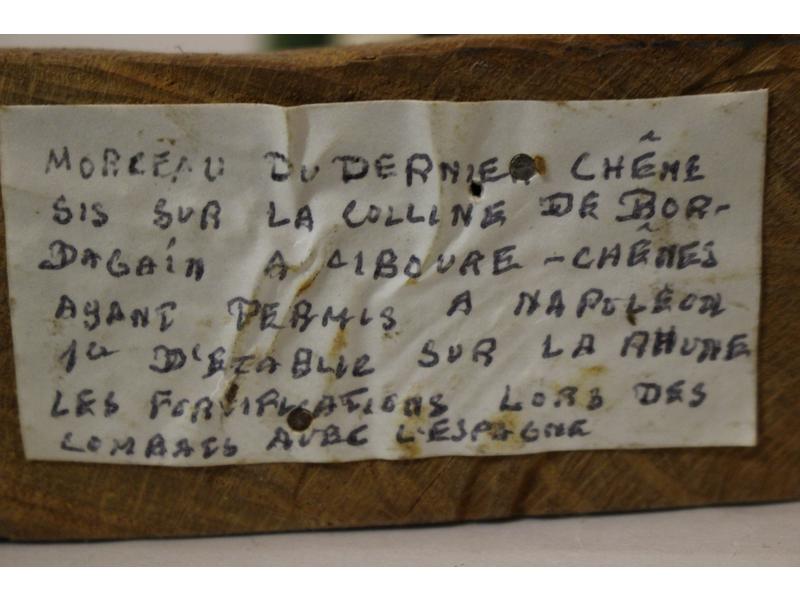 MORCEAU DU DERNIER CHÊNE
SIS SUR LA COLLINE DE BOR-
DAGAÍN A CIBOURE - CHÊNES
AYANT PERMIS A NAPOLÉON
1er D'ETABLIR SUR LA RHUNE
LES FORTIFICATIONS LORS DES
COMBATS AVEC L'ESPAGNE